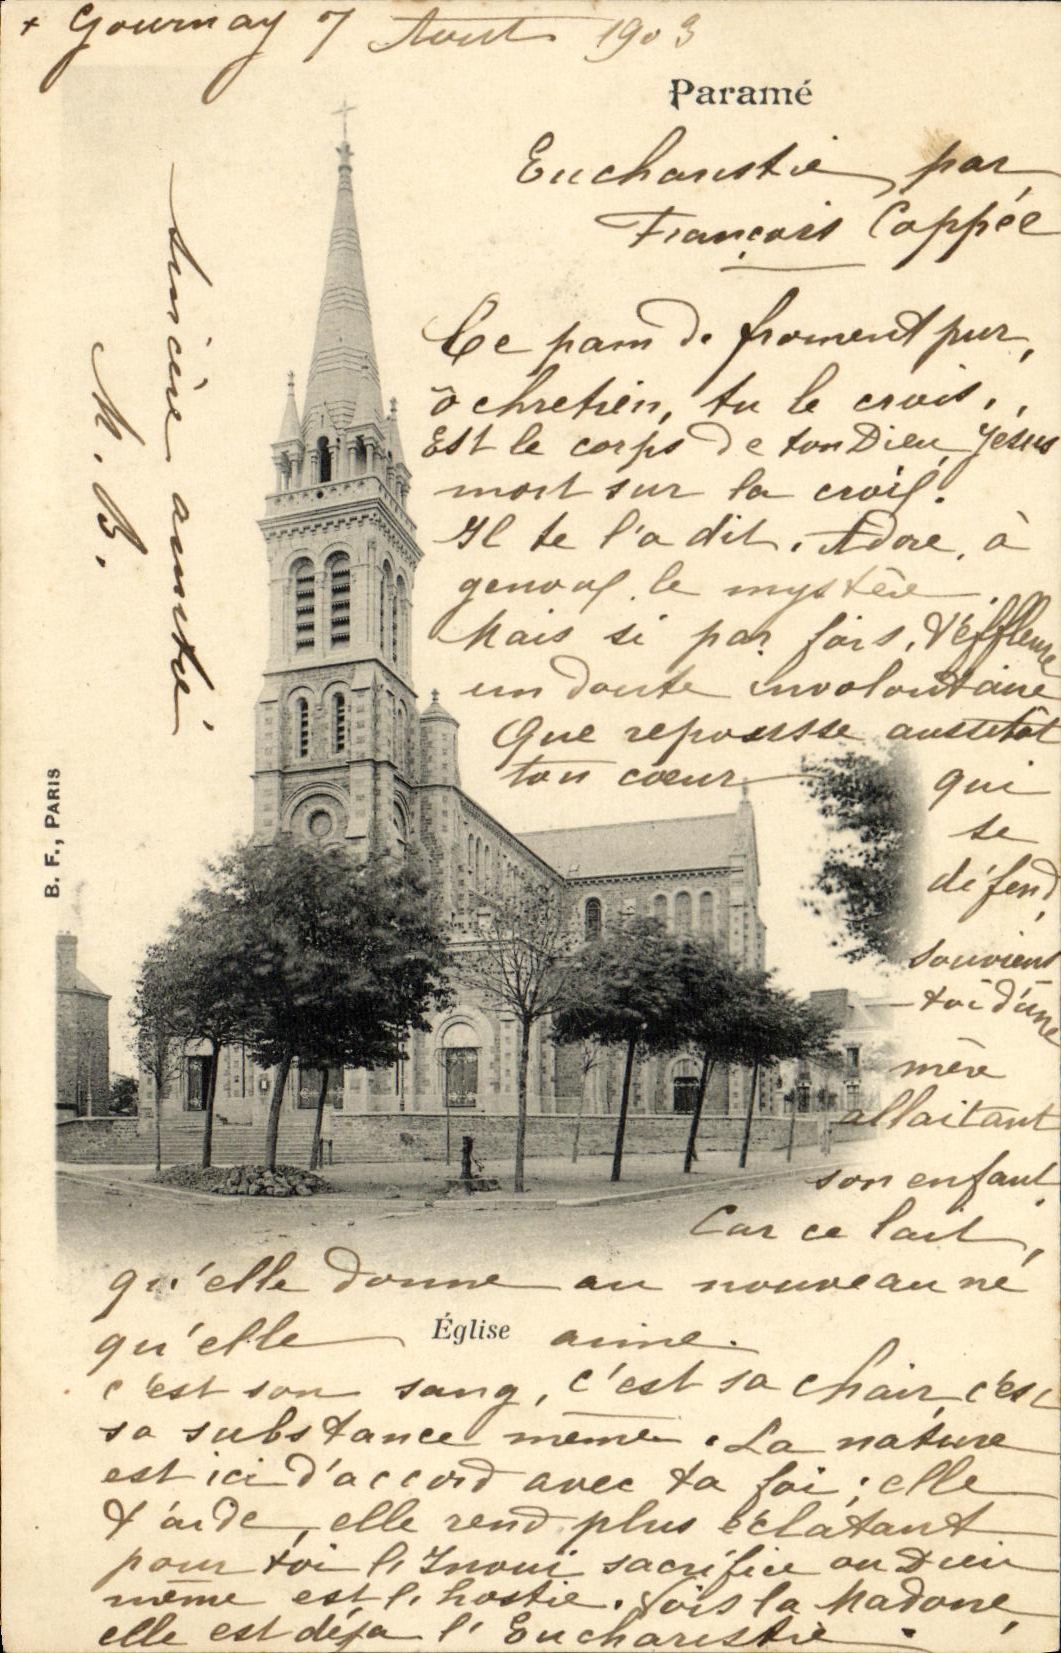 + Gournay 7 Aout 1903
Paramé
Eucharistie par
François Coppée
Ce pain de froment pur,
ô chretien, tu le crois,
Est le corps de ton Dieu, Jesus
mort sur la croix.
Il te l'a dit. Adore, à
genoux le mystère.
Mais si par fois, t'effleure
un doute involontaire
Que repousse aussitôt
ton cœur qui
se
défend,
souviens
-toi d'une
mère
allaitant
son enfant.
Car ce lait,
qu'elle donne au nouveau né
qu'elle aime.
Église
c'est son sang, c'est sa chair, c'est
sa substance meme. La nature
est ici d'accord avec ta foi; elle
t'aide, elle rend plus éclatant
pour toi l'Inoui sacrifice ou Dieu
même est l'hostie. Vois la Madone,
elle est déja l'Eucharistie.
sincère amitié
M. B.
B. F., PARIS